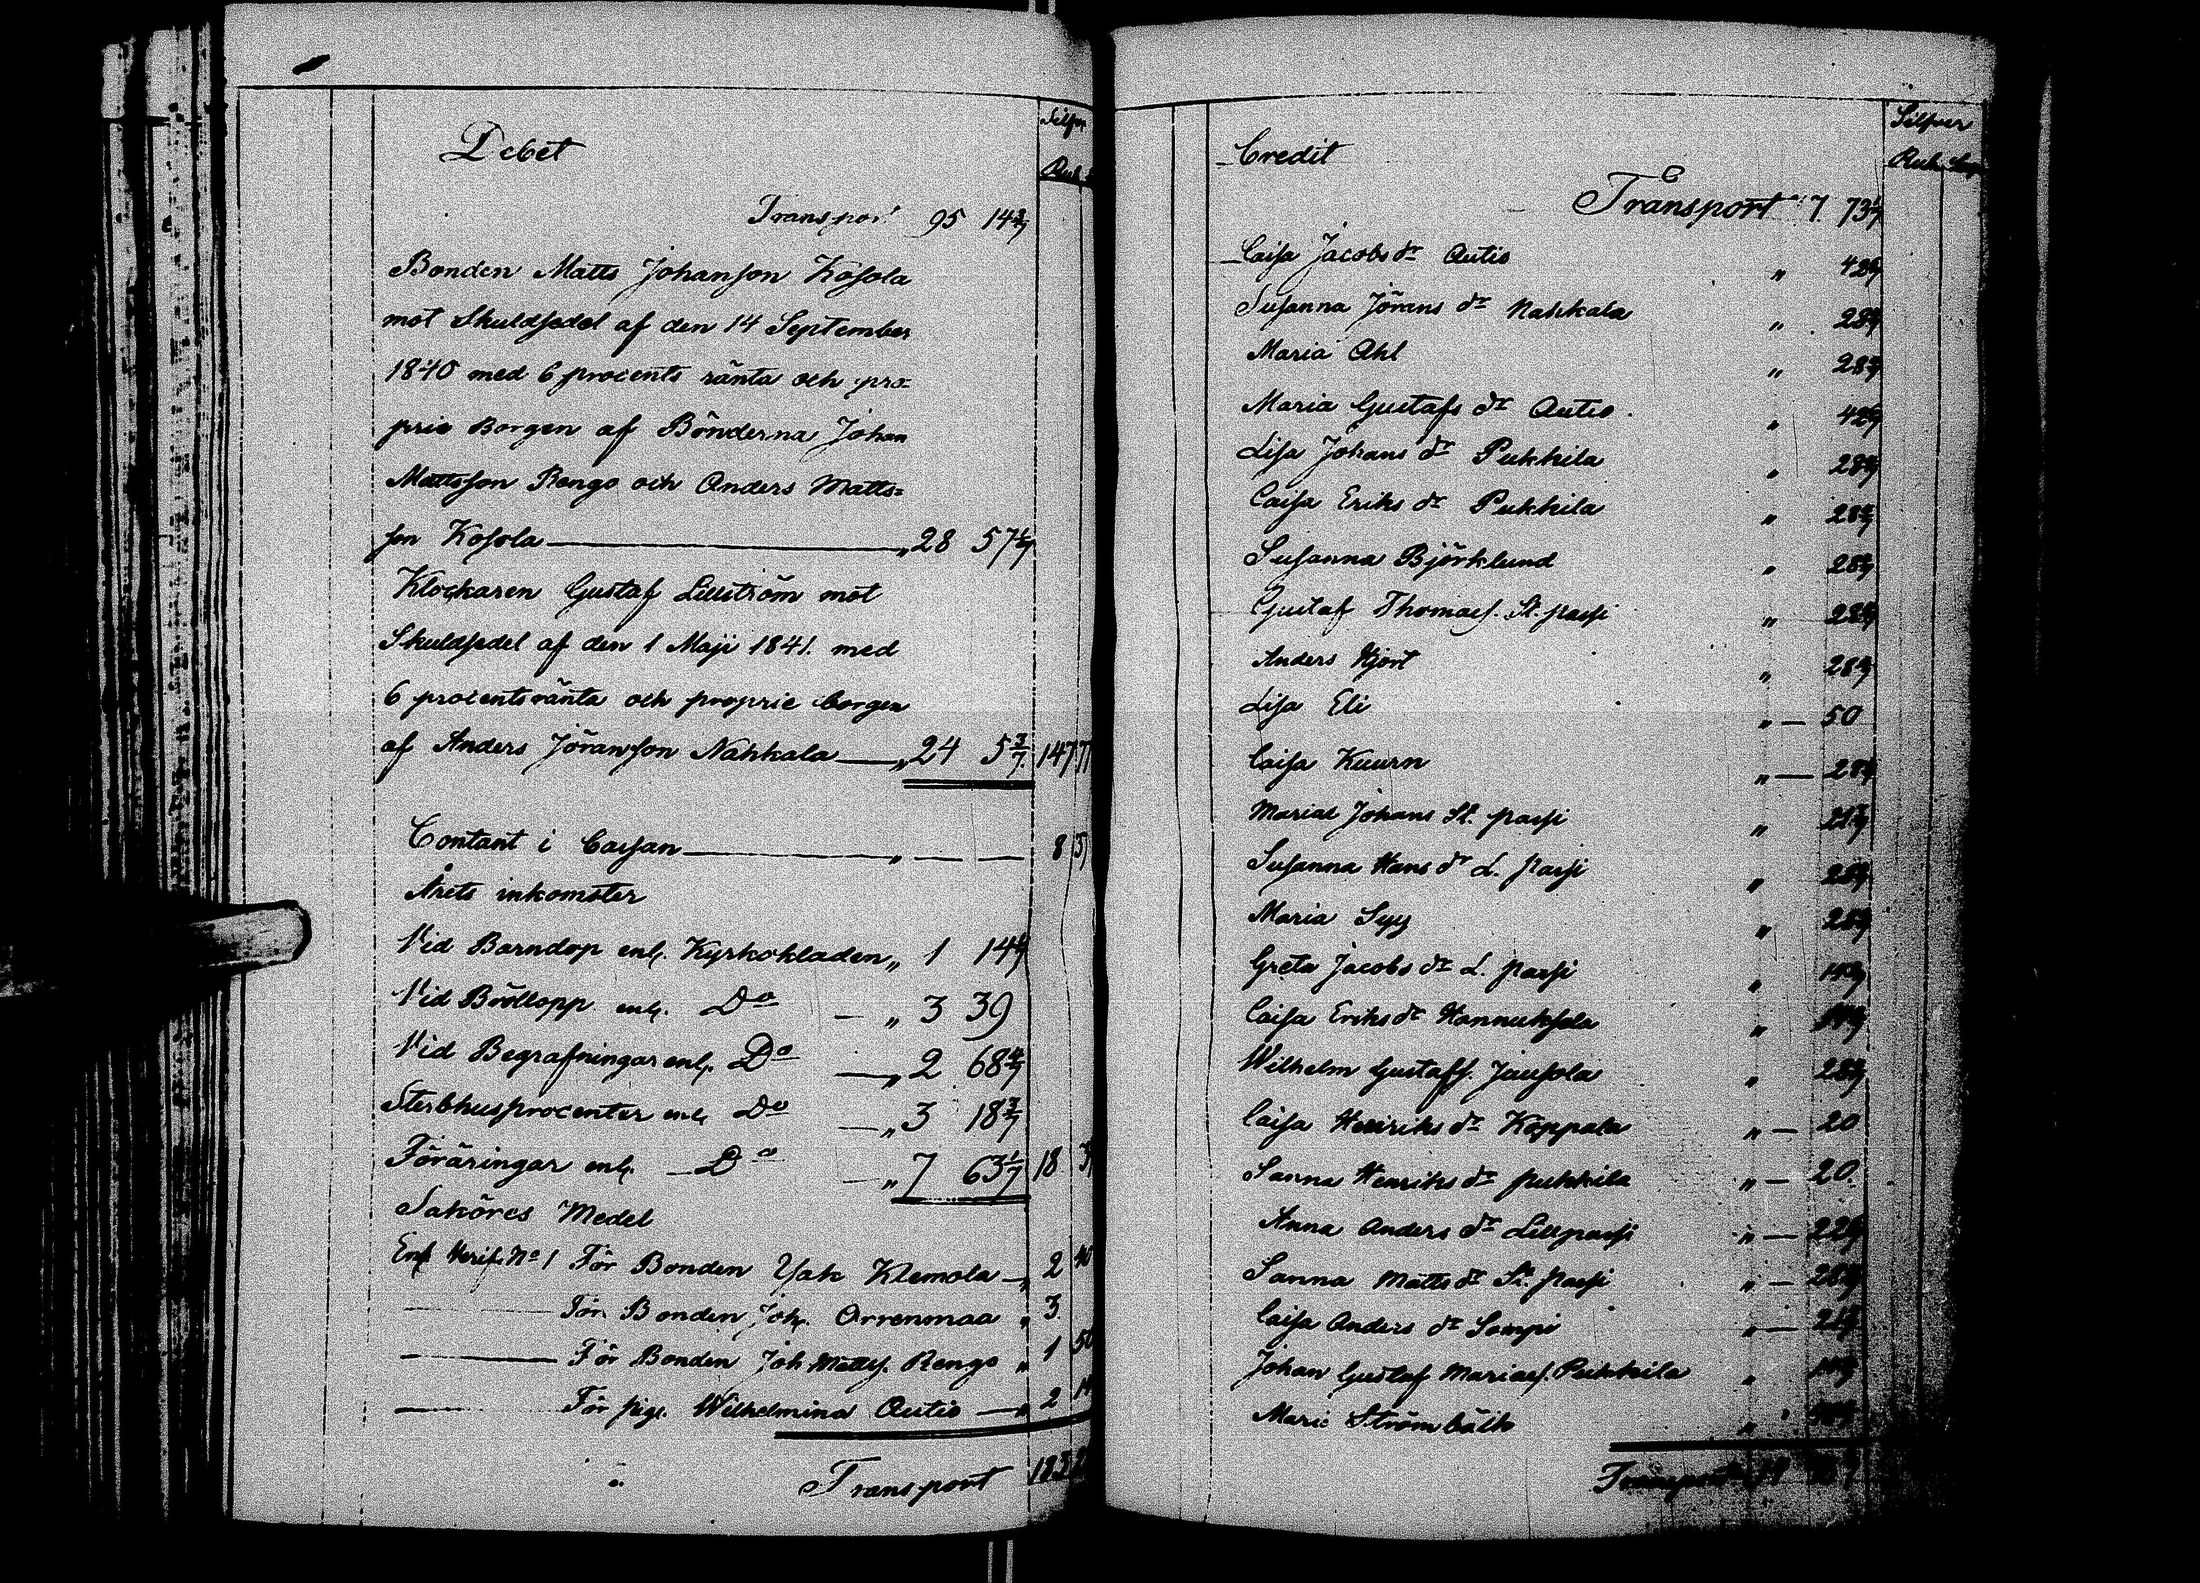 Debet
Silfver
Rub.
Transport 95 14 2/7
Bonden Matts Johansson Kosola
mot Skuldsedel af den 14 September
1840 med 6 procents ränta och pro=
prie Borgen af Bönderna Johan
Mattsson Rengo och Anders Matts=
son Kosola — „ 28 57 1/7
Klockaren Gustaf Lillström mot
Skuldsedel af den 1 Maji 1841. med
6 procents ränta och proprie borgen
af Anders Jöransson Nahkala — „ 24 5 3/7. 147 77
Contant i Cassan — „ — — 8
Årets inkomster
Vid Barndop enl. Kyrkokladen „ 1 14
Vid Bröllopp enl. Do — „ 3 39
Vid Begrafningar enl. Do — „ 2 68 4/7
Sterbhusprocenter enl. Do — „ 3 18 3/7
Föräringar enl. — Do — „ 7 63 1/7 18
Saköres Medel
Enl Verif. No 1 För Bonden Isak Klemola — „ 2 40
— För Bonden Joh. Orrenmaa „ 3.
— För Bonden Joh. Mattss. Rengo „ 1 50
— För pig. Wilhelmina Autio — „ 2
Transport 183
Credit
Silfver
Rub. Kop
Transport „ 7 73 1/7
Caisa Jacobs dr Autio „ 42 6/7
Susanna Jörans dr Nahkala „ 28 4/7
Maria Ahl „ 28 4/7
Maria Gustafs dr Autio. „ 42 6/7
Lisa Johans dr Pukkila „ 28 4/7
Caisa Eriks dr Pukkila „ 28 4/7
Susanna Björklund „ 28 4/7
Gustaf Thomass. St. passi „ 28 4/7
Anders Hjort „ 28 4/7
Lisa Eli „ — 50
Caisa Kuurn „ — 28 4/7
Marias Johans St. passi „ 21 3/7
Susanna Hans dr L. Passi „ 28 4/7
Maria Syy „ 28 4/7
Greta Jacobs dr L. Passi „
Caisa Eriks dr Hannuksela „
Wilhelm Gustafs. Jausola „ 28 4/7
Caisa Henriks dr Koppala „ — 20
Sanna Henriks dr Pukkila „ — 20.
Anna Anders dr Lillpassi „ — 22 6/7
Sanna Matts dr St. Passi „ — 28 4/7
Caisa Anders dr Sompi „ — 21 3/7
Johan Gustaf Mariass. Pukkila „
Maria Strömbäck „
Transport